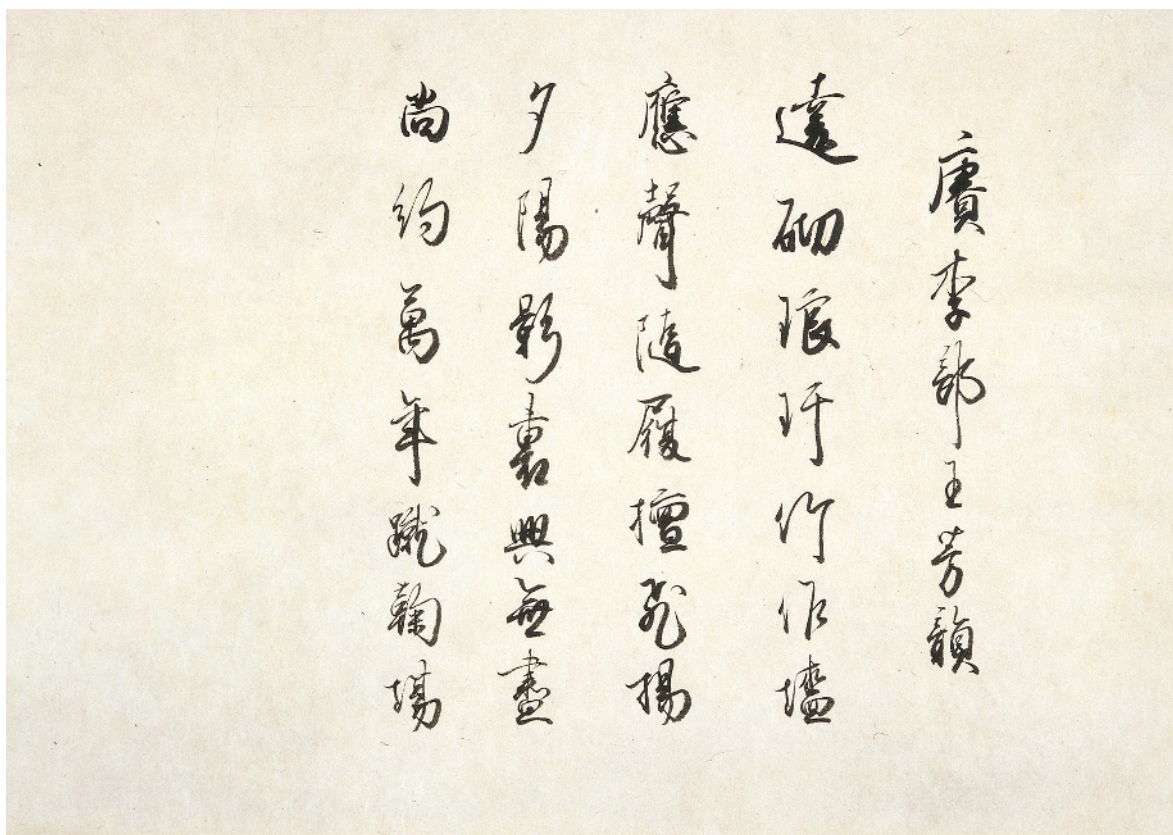 賡李部王芳韻
遶砌琅玕竹作墻
應聲隨履擅飛揚
夕陽影裏興無盡
尚約萬年蹴鞠場